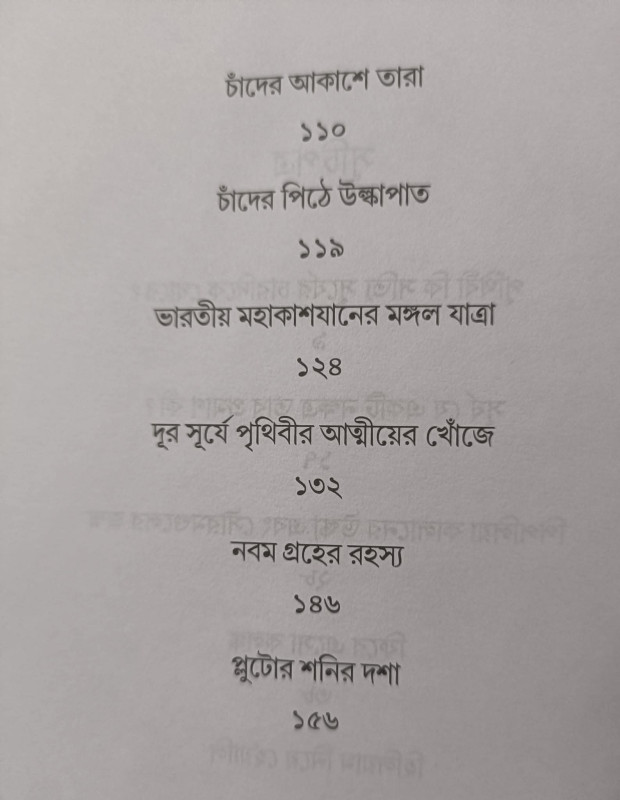 চাঁদের আকাশে তারা
১১০
চাঁদের পিঠে উল্কাপাত
১১৯
ভারতীয় মহাকাশযানের মঙ্গল যাত্রা
১২৪
দূর সূর্যে পৃথিবীর আত্মীয়ের খোঁজে
১৩২
নবম গ্রহের রহস্য
১৪৬
প্লুটোর শনির দশা
১৫৬